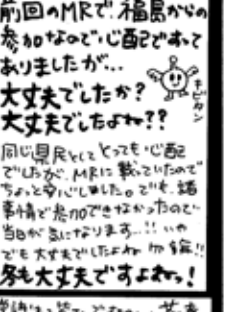 前回のMRで、福島からの
参加なので心配ですって
ありましたが…
大丈夫でしたか?
大丈夫でしたよね??
キビタン
同じ県民としてとっても心配
でしたが、MRに載っていたので
ちょっと安心しました。でも、諸
事情で参加できなかったので
当日が気になります…!!いや
でも大丈夫でしたよね
冬も大丈夫ですよねっ!